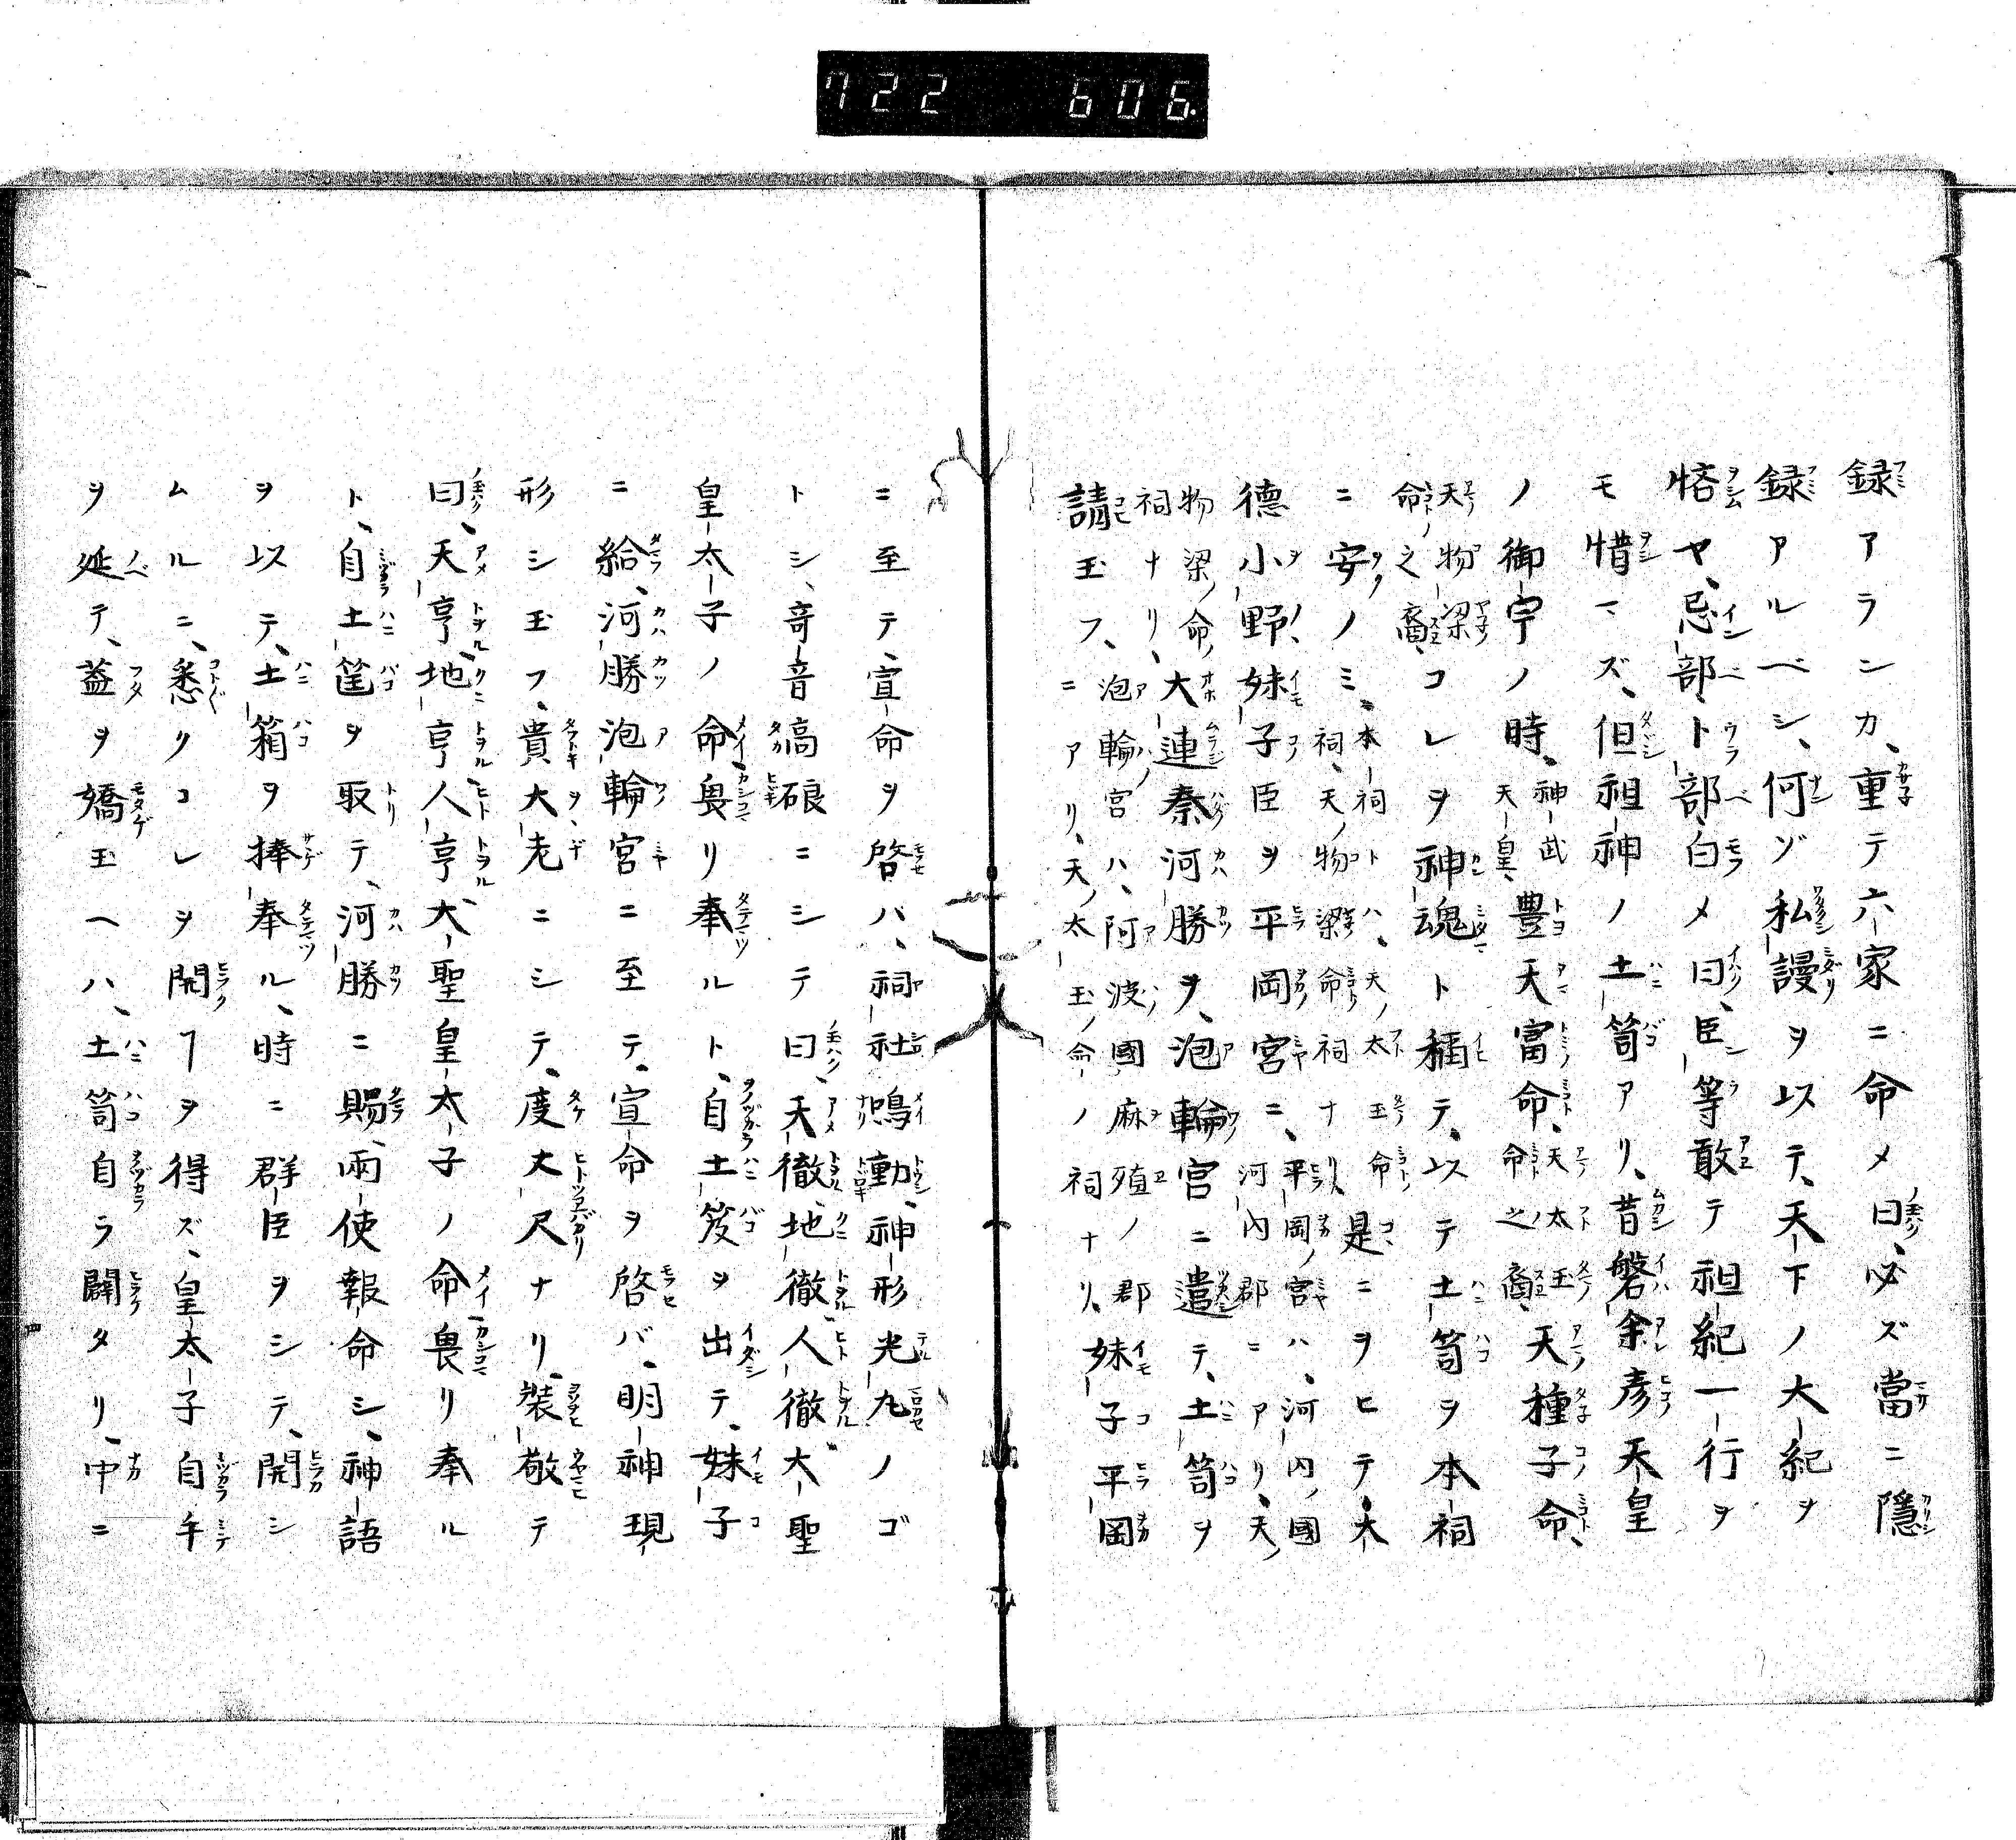 722 606.
録アランカ、重テ六家ニ命メ曰、必ズ當ニ隱
録アルベシ、何ゾ私謾ヲ以テ、天下ノ大紀ヲ
悋ヤ、忌部、卜部、白メ曰、臣等敢テ祖紀一行ヲ
モ惜マズ、但祖神ノ土笥アリ、昔磐余彦天皇
ノ御宇ノ時、神武天皇、豊天富命、天太玉命之裔、天種子命、
天物梁命之裔、コレヲ神魂ト稱テ、以テ土笥ヲ本祠
ニ安ノミ、本祠トハ、天ノ太玉命祠、天ノ物梁命祠ナリ、是ニヲヒテ、大
德小野妹子臣ヲ平岡宮ニ、平岡ノ宮ハ、河内ノ國河内郡ニアリ、天ノ
物梁ノ命ノ祠ナリ、大連秦河勝ヲ、泡輪宮ニ遣テ、土笥ヲ
請玉フ、泡輪ノ宮ハ、阿波國麻殖ノ郡ニアリ、天ノ太玉ノ命ノ祠ナリ、妹子平岡
ニ至テ、宣命ヲ啓バ、祠社鳴動、神形光丸ノゴ
トシ、竒音高硠ニシテ曰、天徹、地徹、人徹、大聖
皇太子ノ命畏リ奉ルト、自土笈ヲ出テ、妹子
ニ給、河勝泡輪宮ニ至テ、宣命ヲ啓バ、明神現
形シ玉フ、貴大老ニシテ、度丈尺ナリ、裝敬テ
曰、天亨、地亨、人亨、大聖皇太子ノ命畏リ奉ル
ト、自土筐ヲ取テ、河勝ニ賜、兩使報命シ、神語
ヲ以テ、土箱ヲ捧奉ル、時ニ群臣ヲシテ、開シ
ムルニ、悉クコレヲ開ヿヲ得ズ、皇太子自手
ヲ延テ、蓋ヲ嬌玉ヘハ、土笥自ラ闢タリ、中ニ